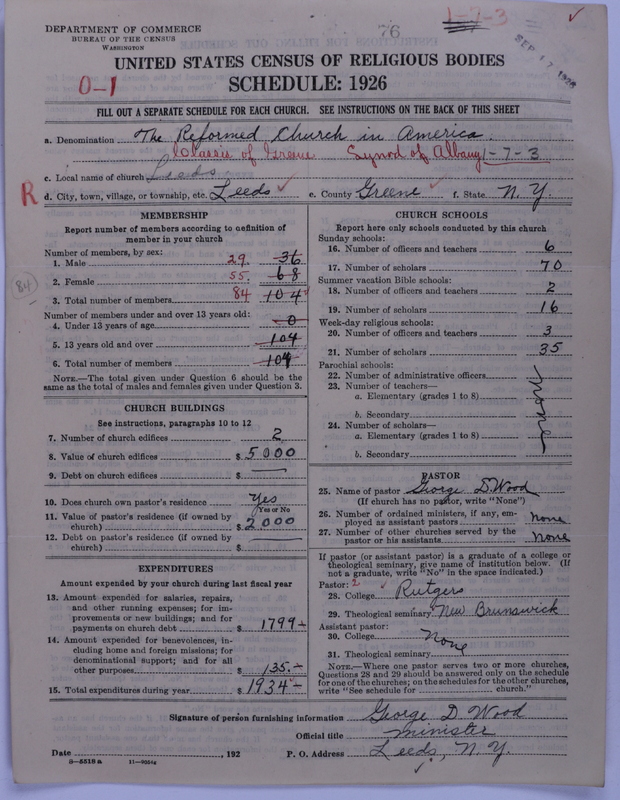 DEPARTMENT OF COMMERCE
BUREAU OF THE CENSUS
WASHINGTON
76
1-7-3
SEP 17 1926
0-1
UNITED STATES CENSUS OF RELIGIOUS BODIES
SCHEDULE: 1926
FILL OUT A SEPARATE SCHEDULE FOR EACH CHURCH. SEE INSTRUCTIONS ON THE BACK OF THIS SHEET
a. Denomination The Reformed Church in America.
Classis of Greene Synod of Albany 1-7-3
c. Local name of church Leeds
R d. City, town, village, or township, etc. Leeds e. County Greene f. State N. Y.
MEMBERSHIP
Report number of members according to definition of
member in your church
Number of members, by sex:
1. Male 29. 36
2. Female 55. 68
(84)
3. Total number of members 84 104
Number of members under and over 13 years old:
4. Under 13 years of age 0
5. 13 years old and over 104
6. Total number of members 104
NOTE.—The total given under Question 6 should be the
same as the total of males and females given under Question 3.
CHURCH BUILDINGS
See instructions, paragraphs 10 to 12
7. Number of church edifices 2
8. Value of church edifices $ 5000
9. Debt on church edifices $ —
10. Does church own pastor's residence Yes
Yes or No
11. Value of pastor's residence (if owned by
church) $ 2000
12. Debt on pastor's residence (if owned by
church) $ —
EXPENDITURES
Amount expended by your church during last fiscal year
13. Amount expended for salaries, repairs,
and other running expenses; for im-
provements or new buildings; and for
payments on church debt $ 1799—
14. Amount expended for benevolences, in-
cluding home and foreign missions; for
denominational support; and for all
other purposes $ 135.—
15. Total expenditures during year $ 1934—
CHURCH SCHOOLS
Report here only schools conducted by this church
Sunday schools:
16. Number of officers and teachers 6
17. Number of scholars 70
Summer vacation Bible schools:
18. Number of officers and teachers 2
19. Number of scholars 16
Week-day religious schools:
20. Number of officers and teachers 3
21. Number of scholars 35
Parochial schools:
22. Number of administrative officers
23. Number of teachers—
a. Elementary (grades 1 to 8)
b. Secondary
None
24. Number of scholars—
a. Elementary (grades 1 to 8)
b. Secondary
PASTOR
25. Name of pastor George D. Wood
(If church has no pastor, write "None")
26. Number of ordained ministers, if any, em-
ployed as assistant pastors None
27. Number of other churches served by the
pastor or his assistants None
If pastor (or assistant pastor) is a graduate of a college or
theological seminary, give name of institution below. (If
not a graduate, write "No" in the space indicated.)
Pastor: 2
28. College Rutgers
29. Theological seminary New Brunswick
Assistant pastor:
30. College None
31. Theological seminary
NOTE.—Where one pastor serves two or more churches,
Questions 28 and 29 should be answered only on the schedule
for one of the churches; on the schedules for the other churches,
write "See schedule for church."
Signature of person furnishing information George D. Wood
Official title Minister
Date , 192 P. O. Address Leeds, N. Y.